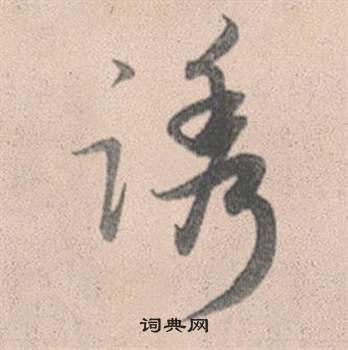 诱
词典网